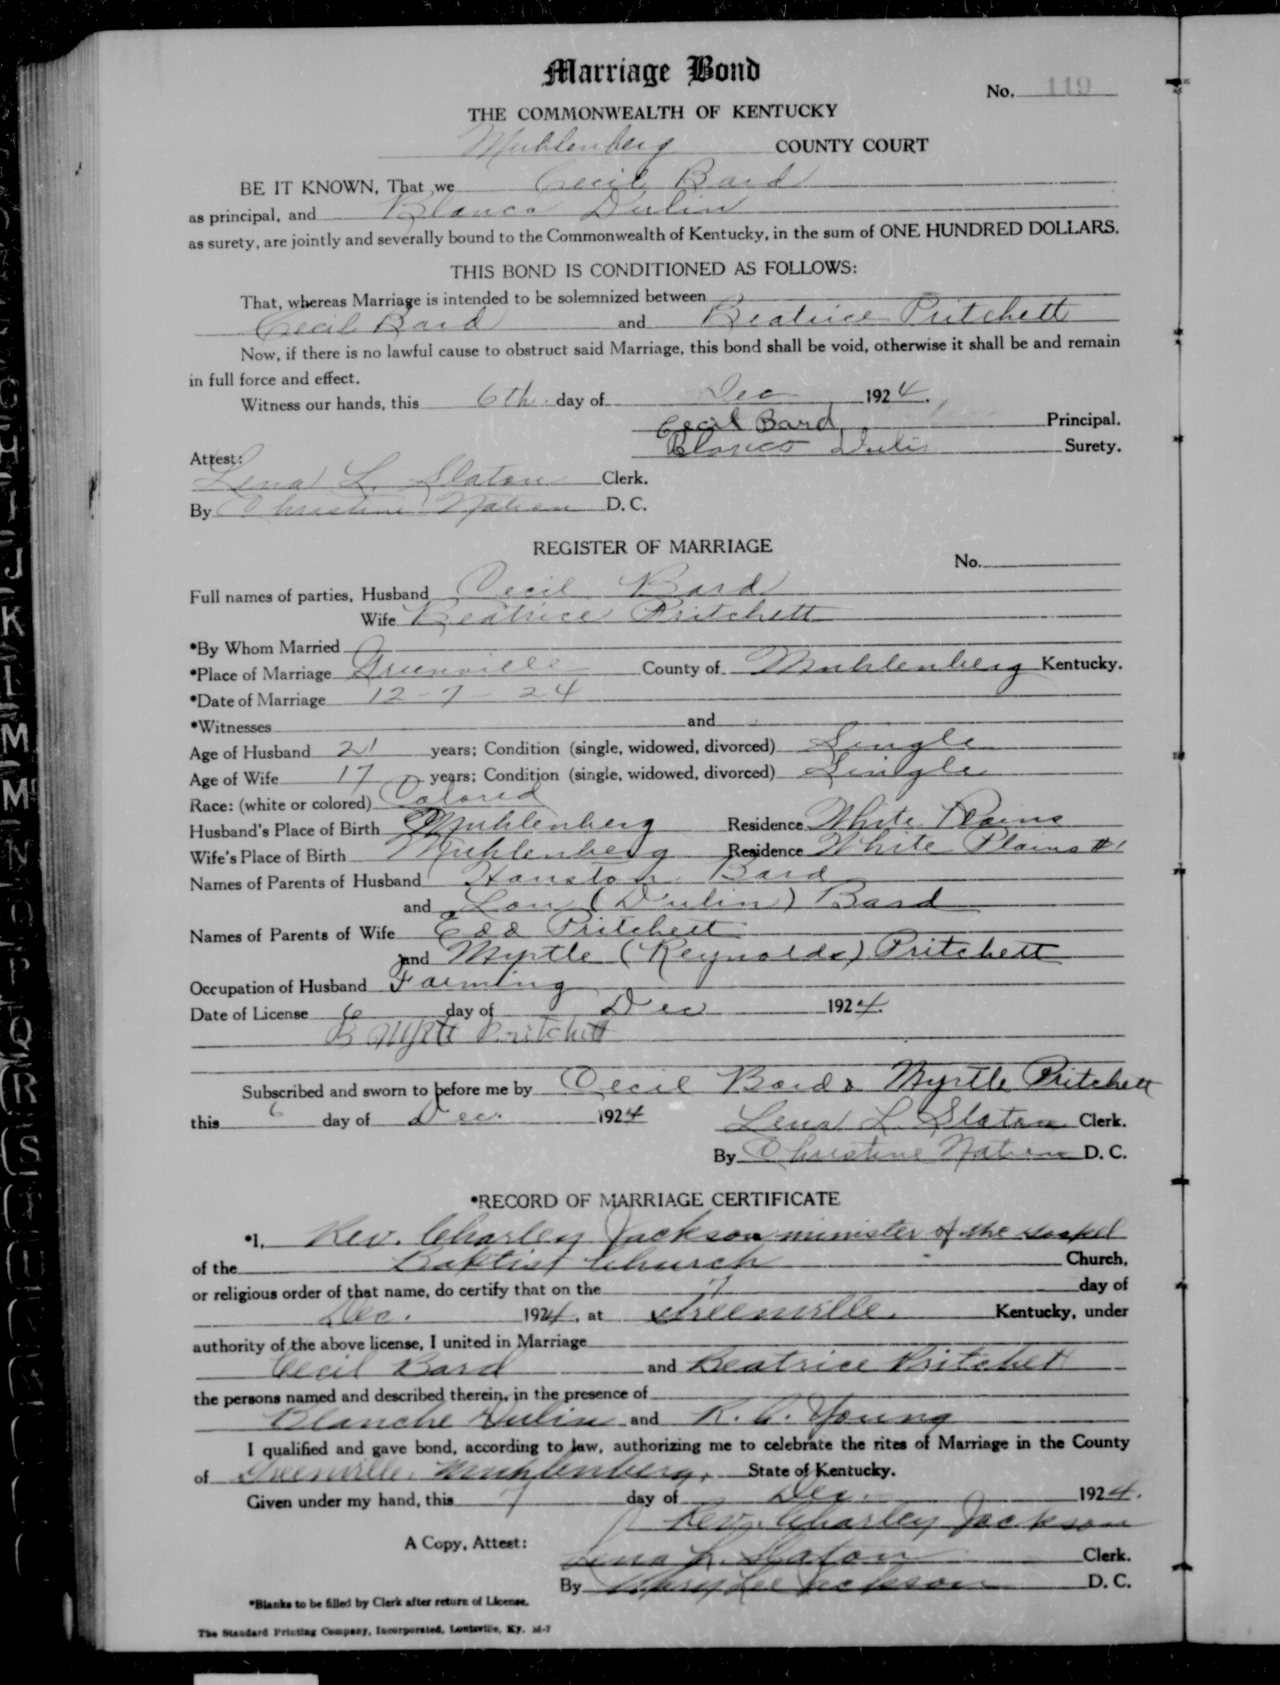 Marriage Bond
No. 119
THE COMMONWEALTH OF KENTUCKY
Muhlenberg COUNTY COURT
BE IT KNOWN, That we Cecil Bard
as principal, and Blanco Dulin
as surety, are jointly and severally bound to the Commonwealth of Kentucky, in the sum of ONE HUNDRED DOLLARS.
THIS BOND IS CONDITIONED AS FOLLOWS:
That, whereas Marriage is intended to be solemnized between
Cecil Bard and Beatrice Pritchett
Now, if there is no lawful cause to obstruct said Marriage, this bond shall be void, otherwise it shall be and remain
in full force and effect.
Witness our hands, this 6th day of Dec 1924.
Cecil Bard Principal.
Blanco Dulin Surety.
Attest:
Lena L. Slaton Clerk.
By Christine Nation D. C.
REGISTER OF MARRIAGE
No.
Full names of parties, Husband Cecil Bard
Wife Beatrice Pritchett
*By Whom Married
*Place of Marriage Greenville County of Muhlenberg Kentucky.
*Date of Marriage 12-7-24
*Witnesses and
Age of Husband 21 years; Condition (single, widowed, divorced) Single
Age of Wife 17 years; Condition (single, widowed, divorced) Single
Race: (white or colored) Colored
Husband's Place of Birth Muhlenberg Residence White Plains
Wife's Place of Birth Muhlenberg Residence White Plains #1
Names of Parents of Husband Houston Bard
and Lou (Dulin) Bard
Names of Parents of Wife Edd Pritchett
and Myrtle (Reynolds) Pritchett
Occupation of Husband Farming
Date of License 6 day of Dec 1924.
Pritchett
Subscribed and sworn to before me by Cecil Bard & Myrtle Pritchett
this 6 day of Dec. 1924
Lena L. Slaton Clerk.
By Christine Nation D. C.
*RECORD OF MARRIAGE CERTIFICATE
*I, Rev. Charley Jackson minister of the Gospel
of the Baptist Church Church,
or religious order of that name, do certify that on the 7 day of
Dec. 1924, at Greenville. Kentucky, under
authority of the above license, I united in Marriage
Cecil Bard and Beatrice Pritchett
the persons named and described therein, in the presence of
Blanche Dulin and R. C. Young
I qualified and gave bond, according to law, authorizing me to celebrate the rites of Marriage in the County
of Greenville, Muhlenberg, State of Kentucky.
Given under my hand, this 7 day of Dec. 1924.
Rev. Charley Jackson
A Copy, Attest:
Lena L. Slaton Clerk.
By Mary Lee Jackson D. C.
*Blanks to be filled by Clerk after return of License.
The Standard Printing Company, Incorporated, Louisville, Ky. M-7